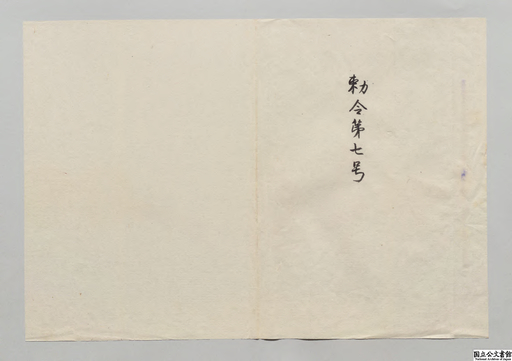 勅令第七号
国立公文書館
National Archives of Japan